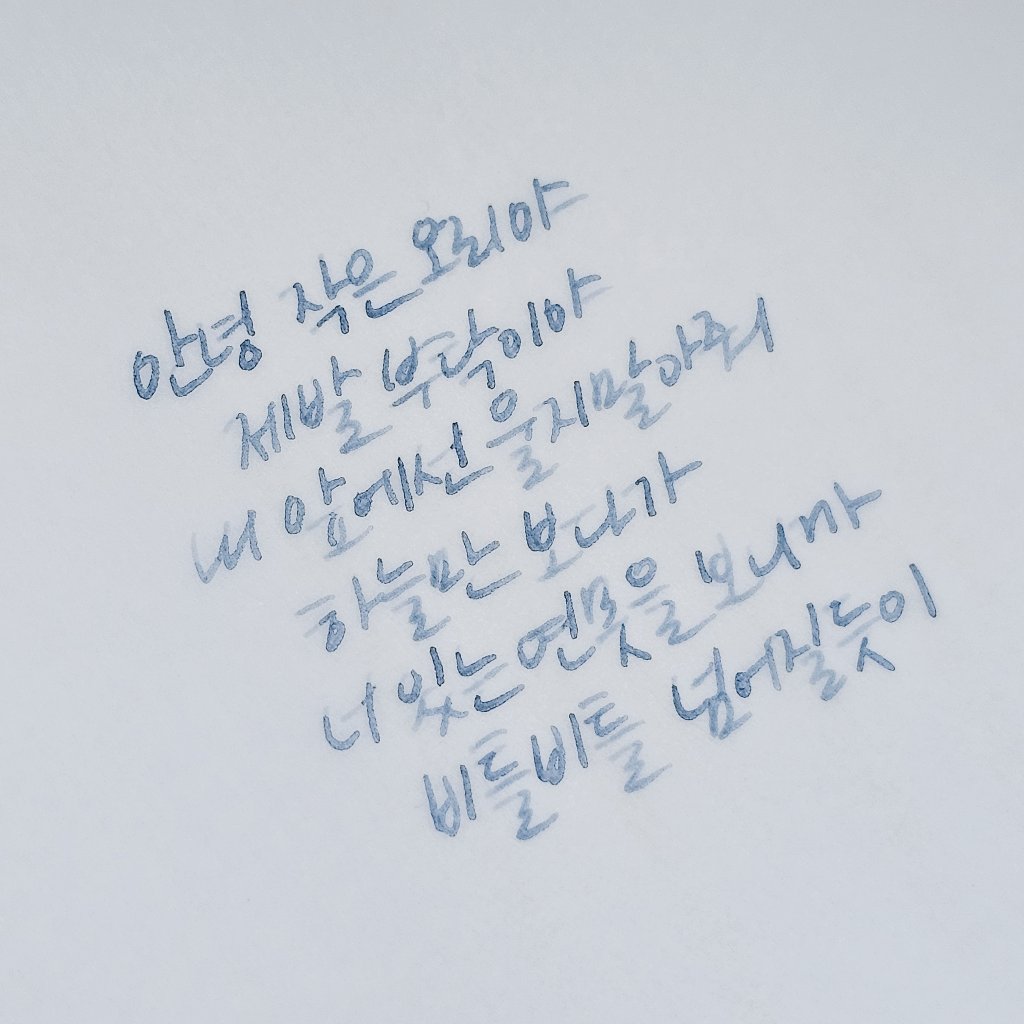 안녕 작은 오리야
제발 부탁이야
내 앞에선 울지말아줘
하늘만 보다가
너 있는 연못을 보니까
비틀비틀 넘어질듯이